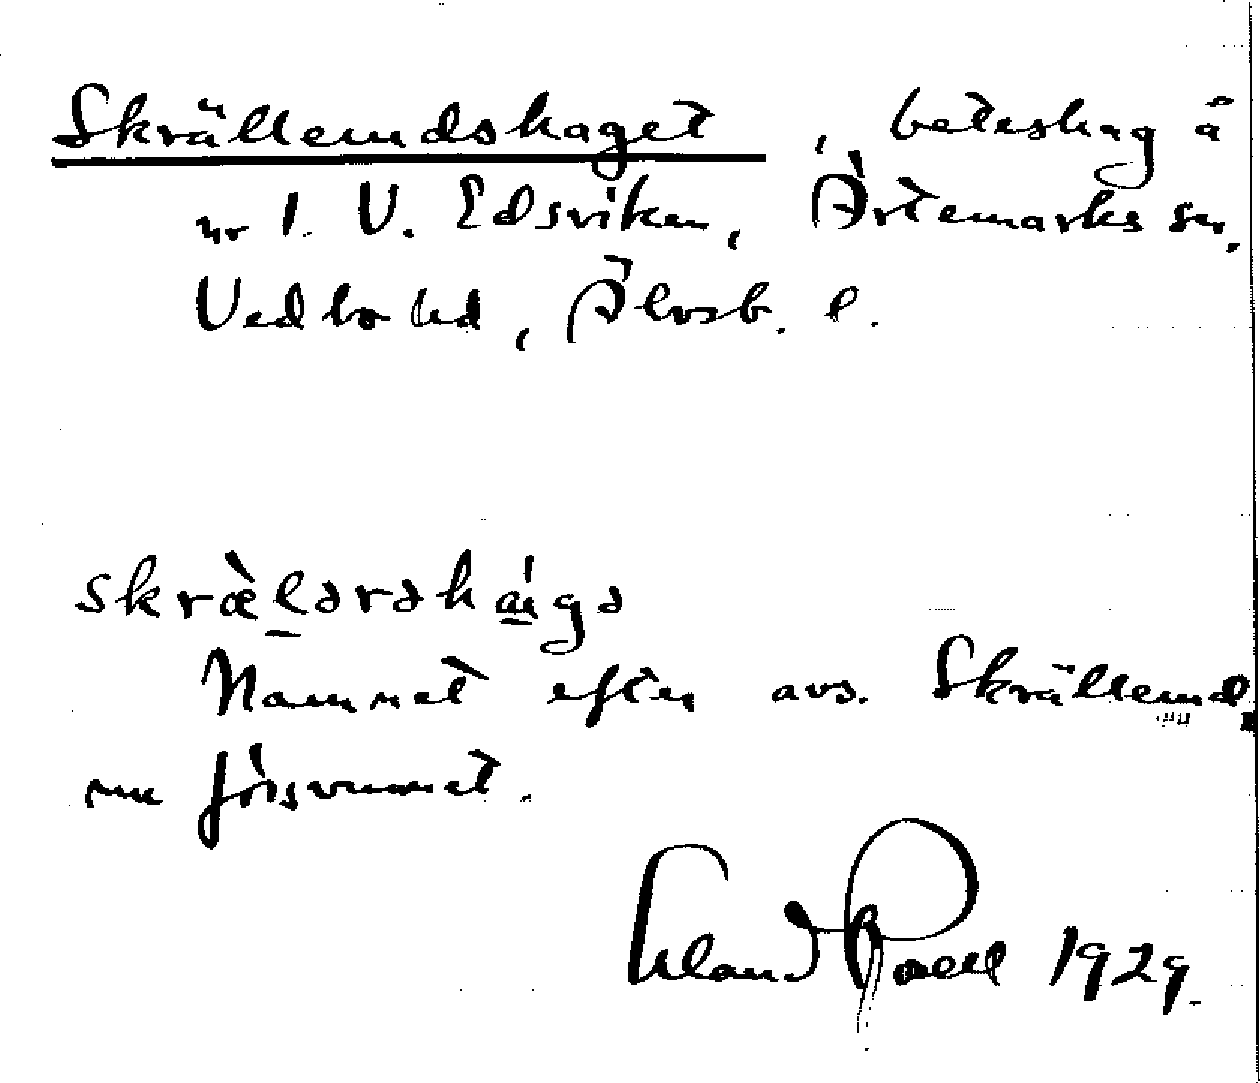 Skrällerudshaget, beteshag å
nr 1. V. Edsviken, Ärtemarks sn,
Vedbo hd, Älvsb. l.
skræ̀lərəhágə
Namnet efter avs. Skrällerud,
nu försvunnet.
Erland Rosell 1929.